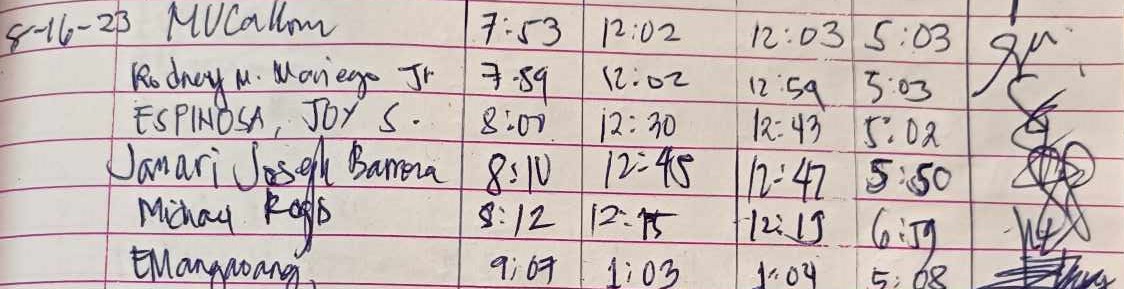 8-16-23 MVCallom 7:53 12:02 12:03 5:03
Rodney M. Moniego Jr 7:59 12:02 12:59 5:03
ESPINOSA, JOY S. 12:30 12:43 5:02
Jamari Joseph Barrera 8:10 12:45 12:47 5:50
8:12 12:15 12:19 6:59
EMangaoang 9:07 1:03 1:04 5:08